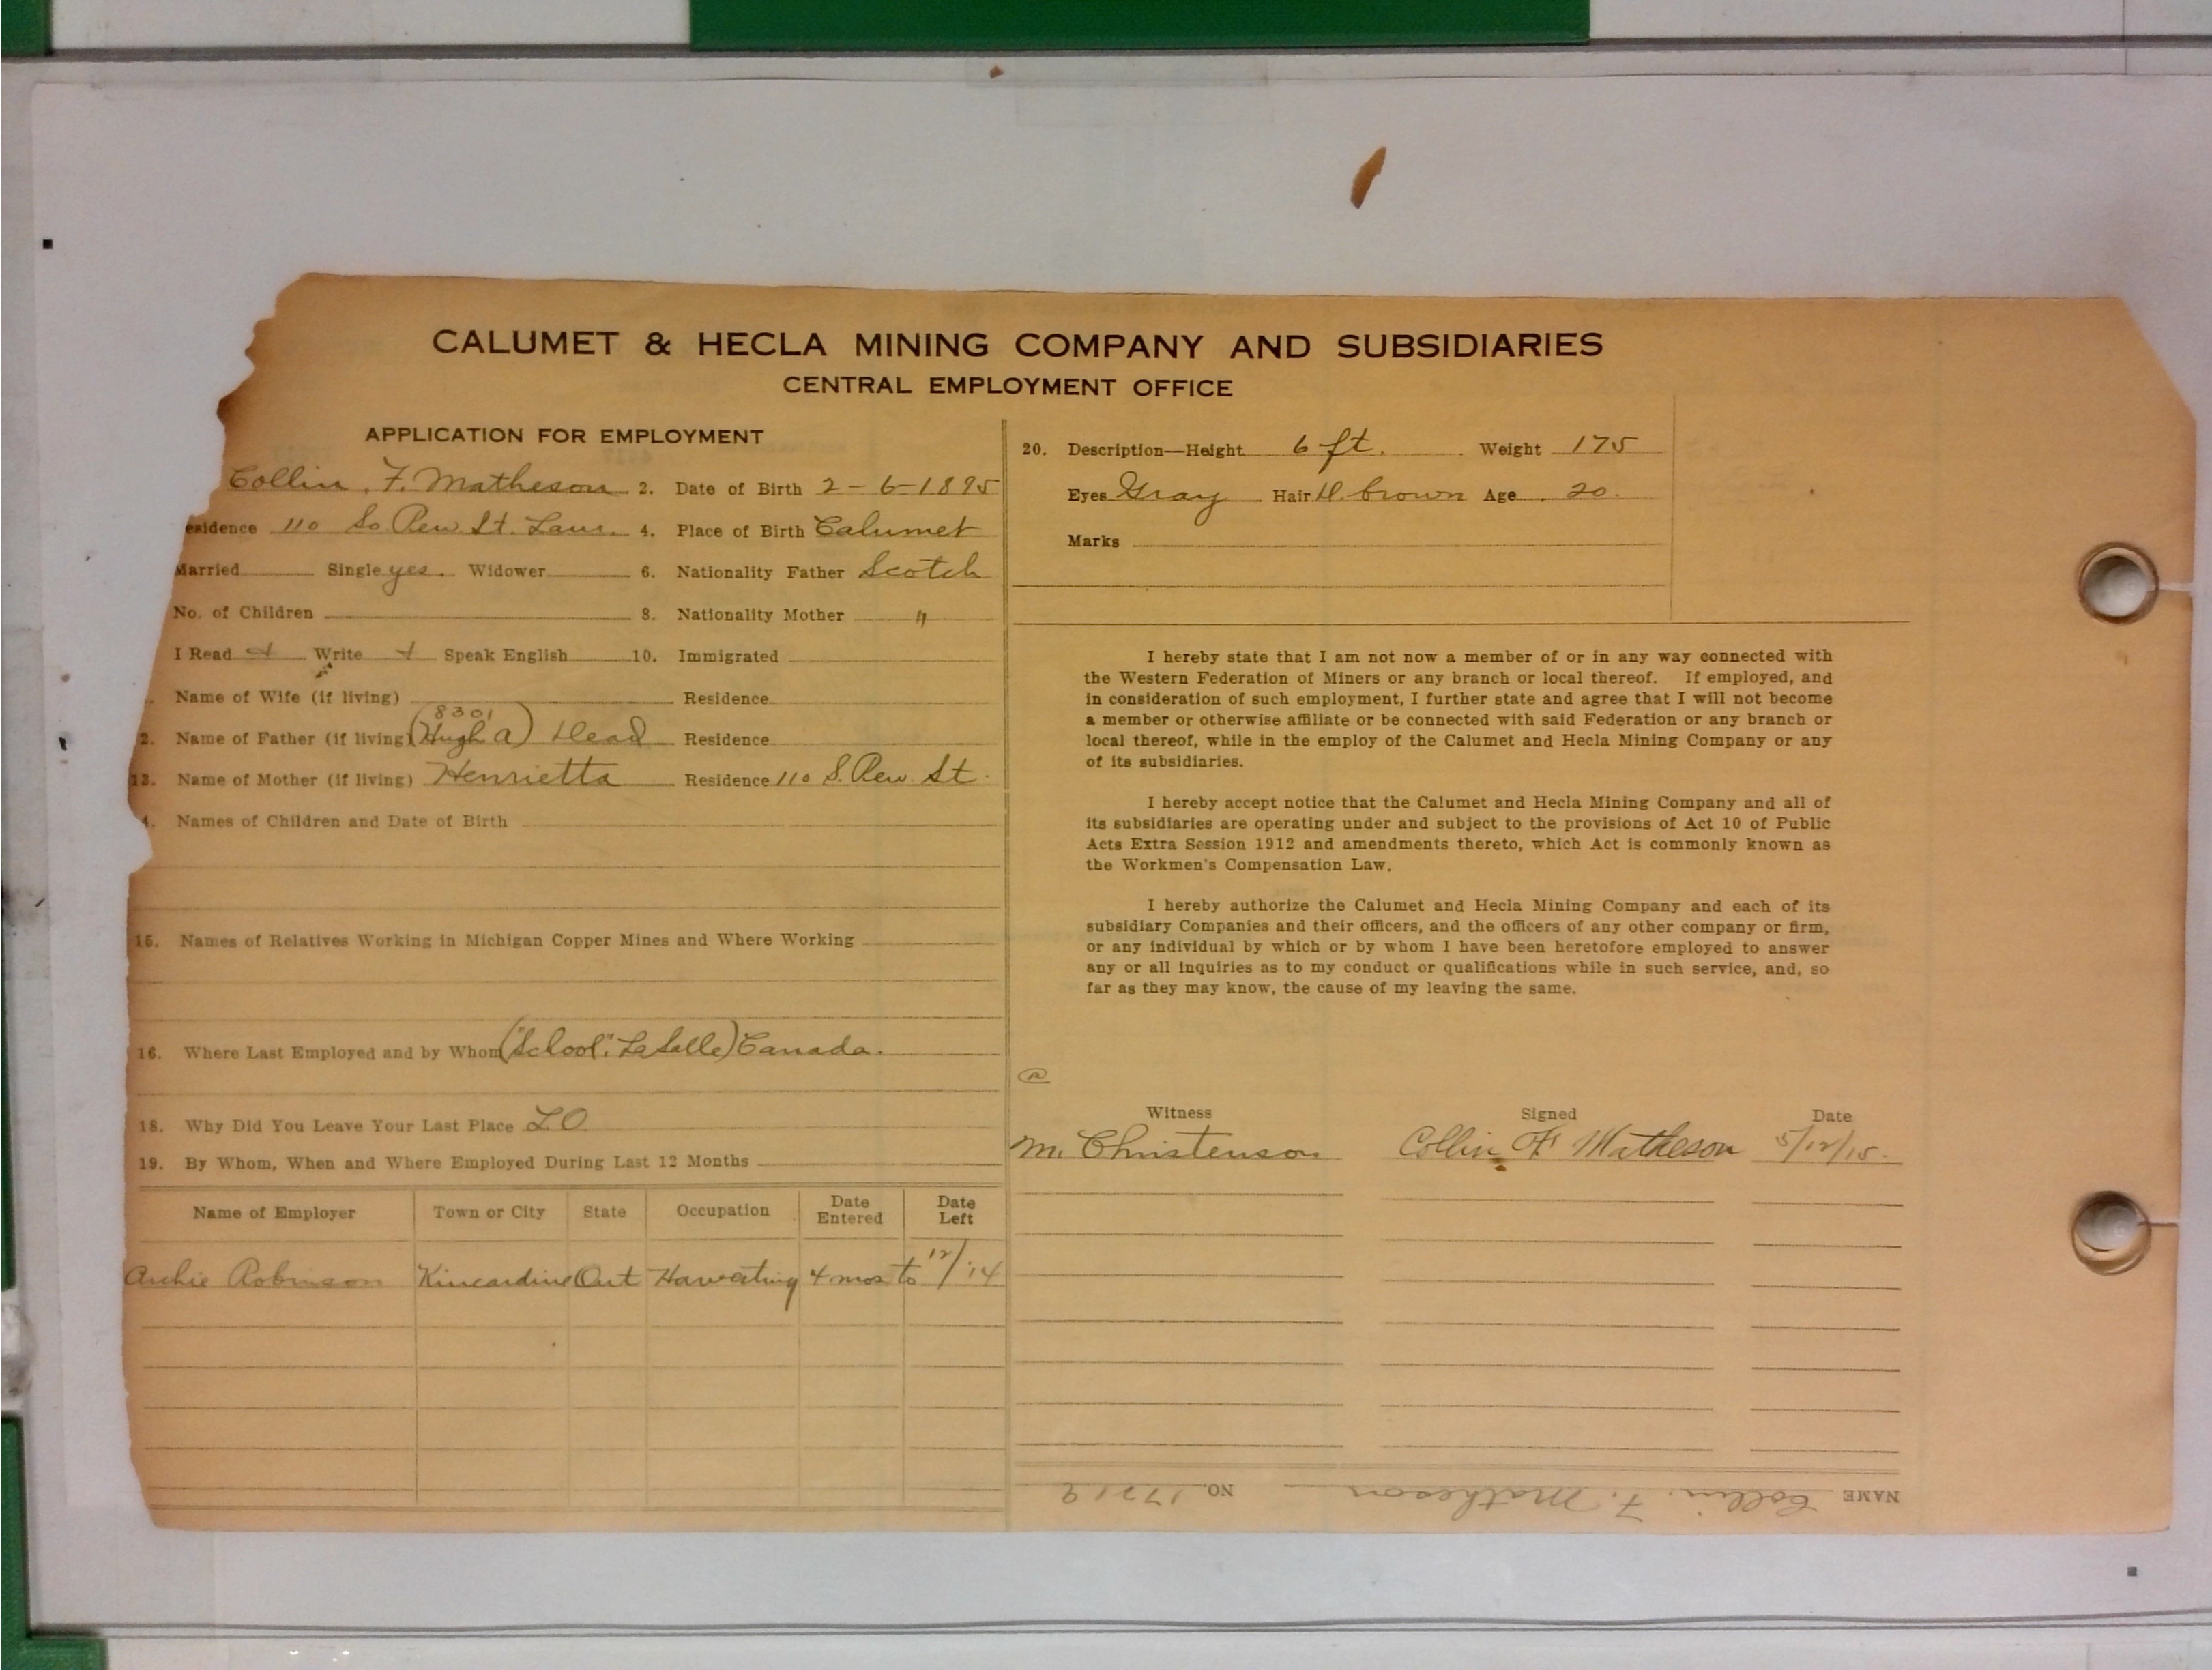 CALUMET & HECLA MINING COMPANY AND SUBSIDIARIES
CENTRAL EMPLOYMENT OFFICE
APPLICATION FOR EMPLOYMENT
Collin. F. Matheson 2. Date of Birth 2-6-1895
esidence 110 So. Rew St. Laur. 4. Place of Birth Calumet
Married Single yes. Widower 6. Nationality Father Scotch
No. of Children 8. Nationality Mother "
I Read Write Speak English 10. Immigrated
Name of Wife (if living) Residence
8301
2. Name of Father (if living) (Hugh a) Dead Residence
13. Name of Mother (if living) Henrietta Residence 110 S. Rew St.
4. Names of Children and Date of Birth
15. Names of Relatives Working in Michigan Copper Mines and Where Working
16. Where Last Employed and by Whom ("School", LaSalle) Canada.
18. Why Did You Leave Your Last Place LO
19. By Whom, When and Where Employed During Last 12 Months
Name of Employer Town or City State Occupation Date Entered Date Left
Archie Robinson Kincardine Ont Harvesting 4 mos to 12/'14
20. Description—Height 6 ft. Weight 175
Eyes Gray Hair D. brown Age 20.
Marks
I hereby state that I am not now a member of or in any way connected with
the Western Federation of Miners or any branch or local thereof. If employed, and
in consideration of such employment, I further state and agree that I will not become
a member or otherwise affiliate or be connected with said Federation or any branch or
local thereof, while in the employ of the Calumet and Hecla Mining Company or any
of its subsidiaries.
I hereby accept notice that the Calumet and Hecla Mining Company and all of
its subsidiaries are operating under and subject to the provisions of Act 10 of Public
Acts Extra Session 1912 and amendments thereto, which Act is commonly known as
the Workmen's Compensation Law.
I hereby authorize the Calumet and Hecla Mining Company and each of its
subsidiary Companies and their officers, and the officers of any other company or firm,
or any individual by which or by whom I have been heretofore employed to answer
any or all inquiries as to my conduct or qualifications while in such service, and, so
far as they may know, the cause of my leaving the same.
Witness Signed Date
M. Christenson Collin F Matheson 5/12/15.
NAME Collin. F. Matheson NO. 17219